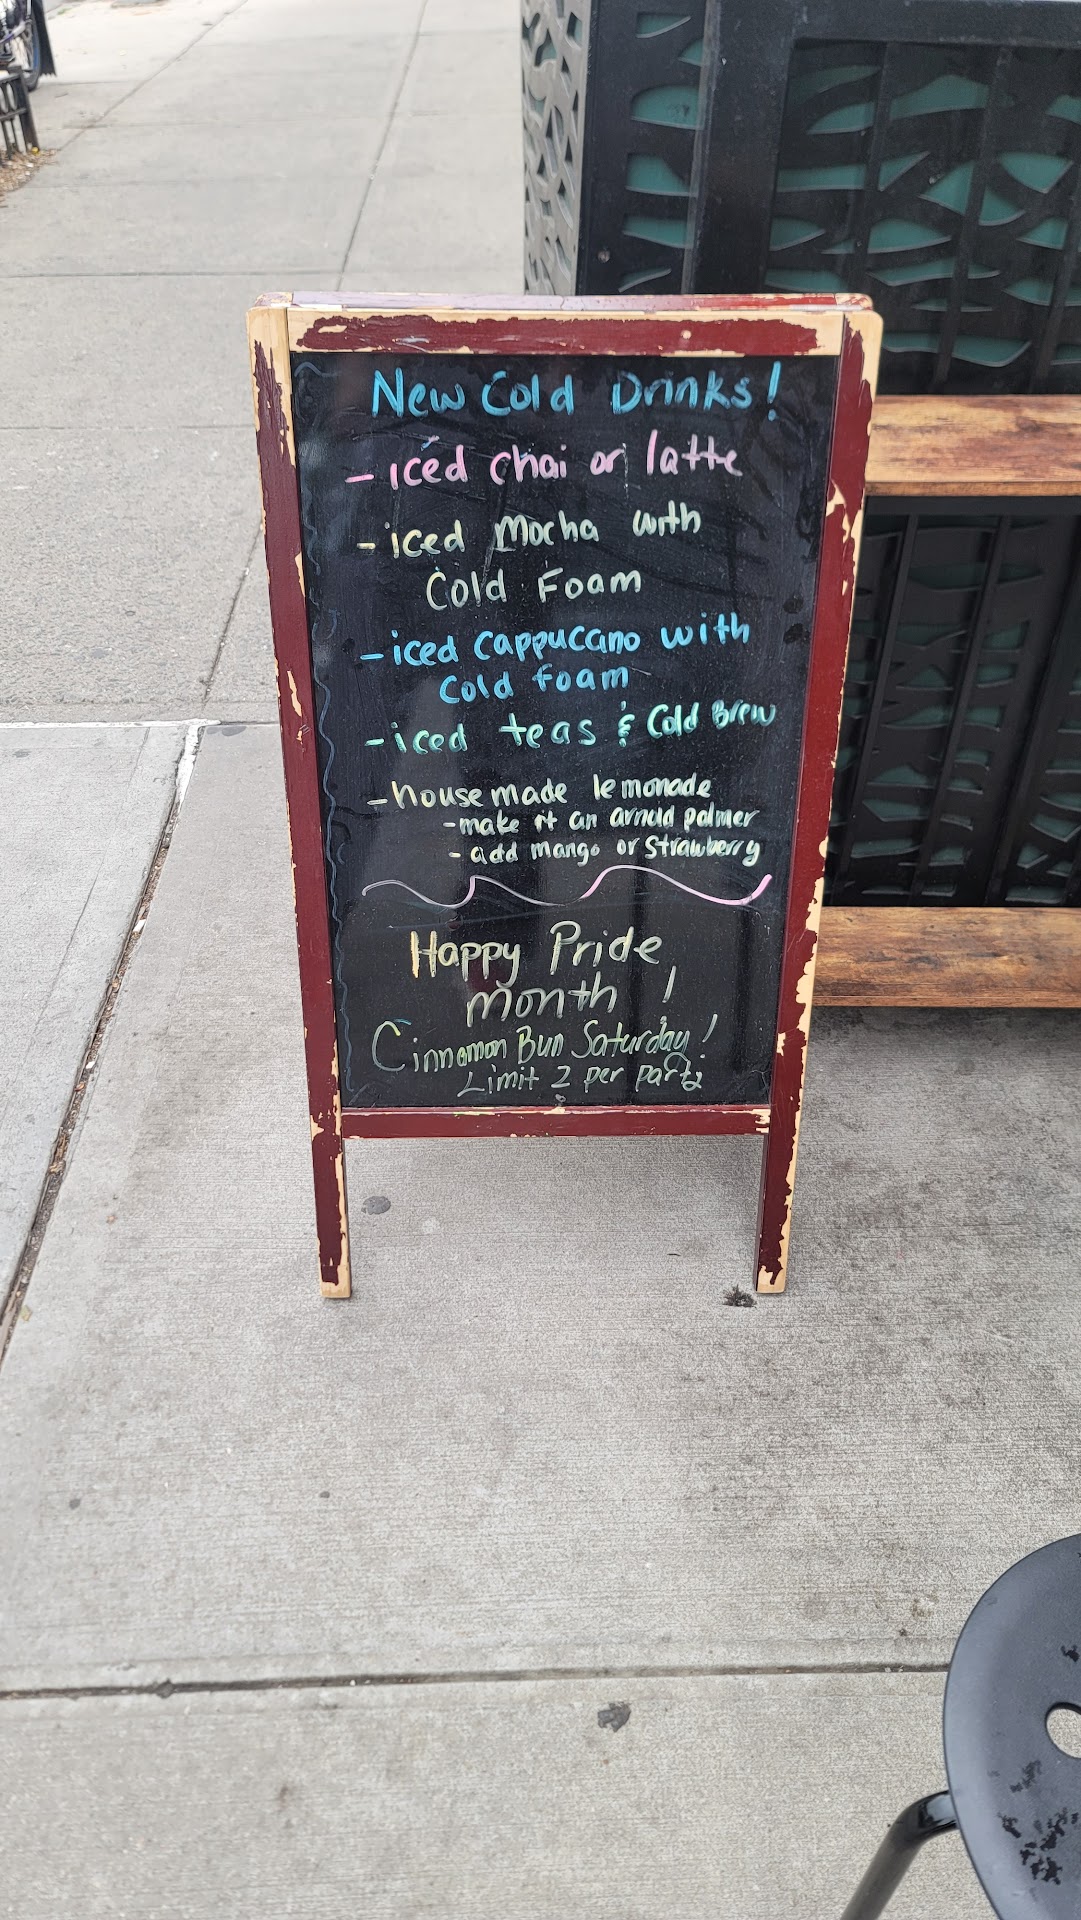 New Cold Drinks!
- iced chai or latte
- iced Mocha with
Cold Foam
- iced cappuccano with
Cold foam
- iced teas & Cold Brew
- house made lemonade
- make it an arnold palmer
- add mango or strawberry
Happy Pride
month !
Cinnamon Bun Saturday!
Limit 2 per party